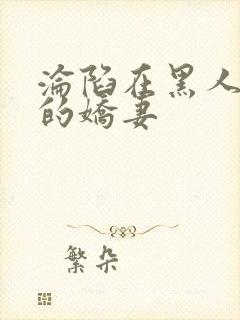 淪陷在黑人
的嬌妻
繁朵